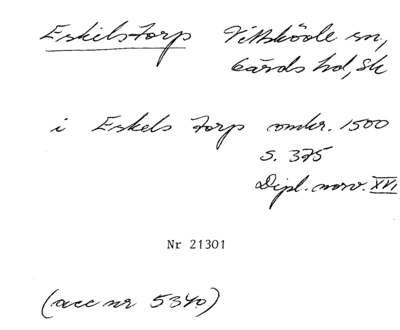 Eskilstorp Vittskövle sn,
Gärds hd, Sk
i Eskels torp omkr. 1500
s. 375
Dipl. norv. XVI
Nr 21301
(acc nr 5340)